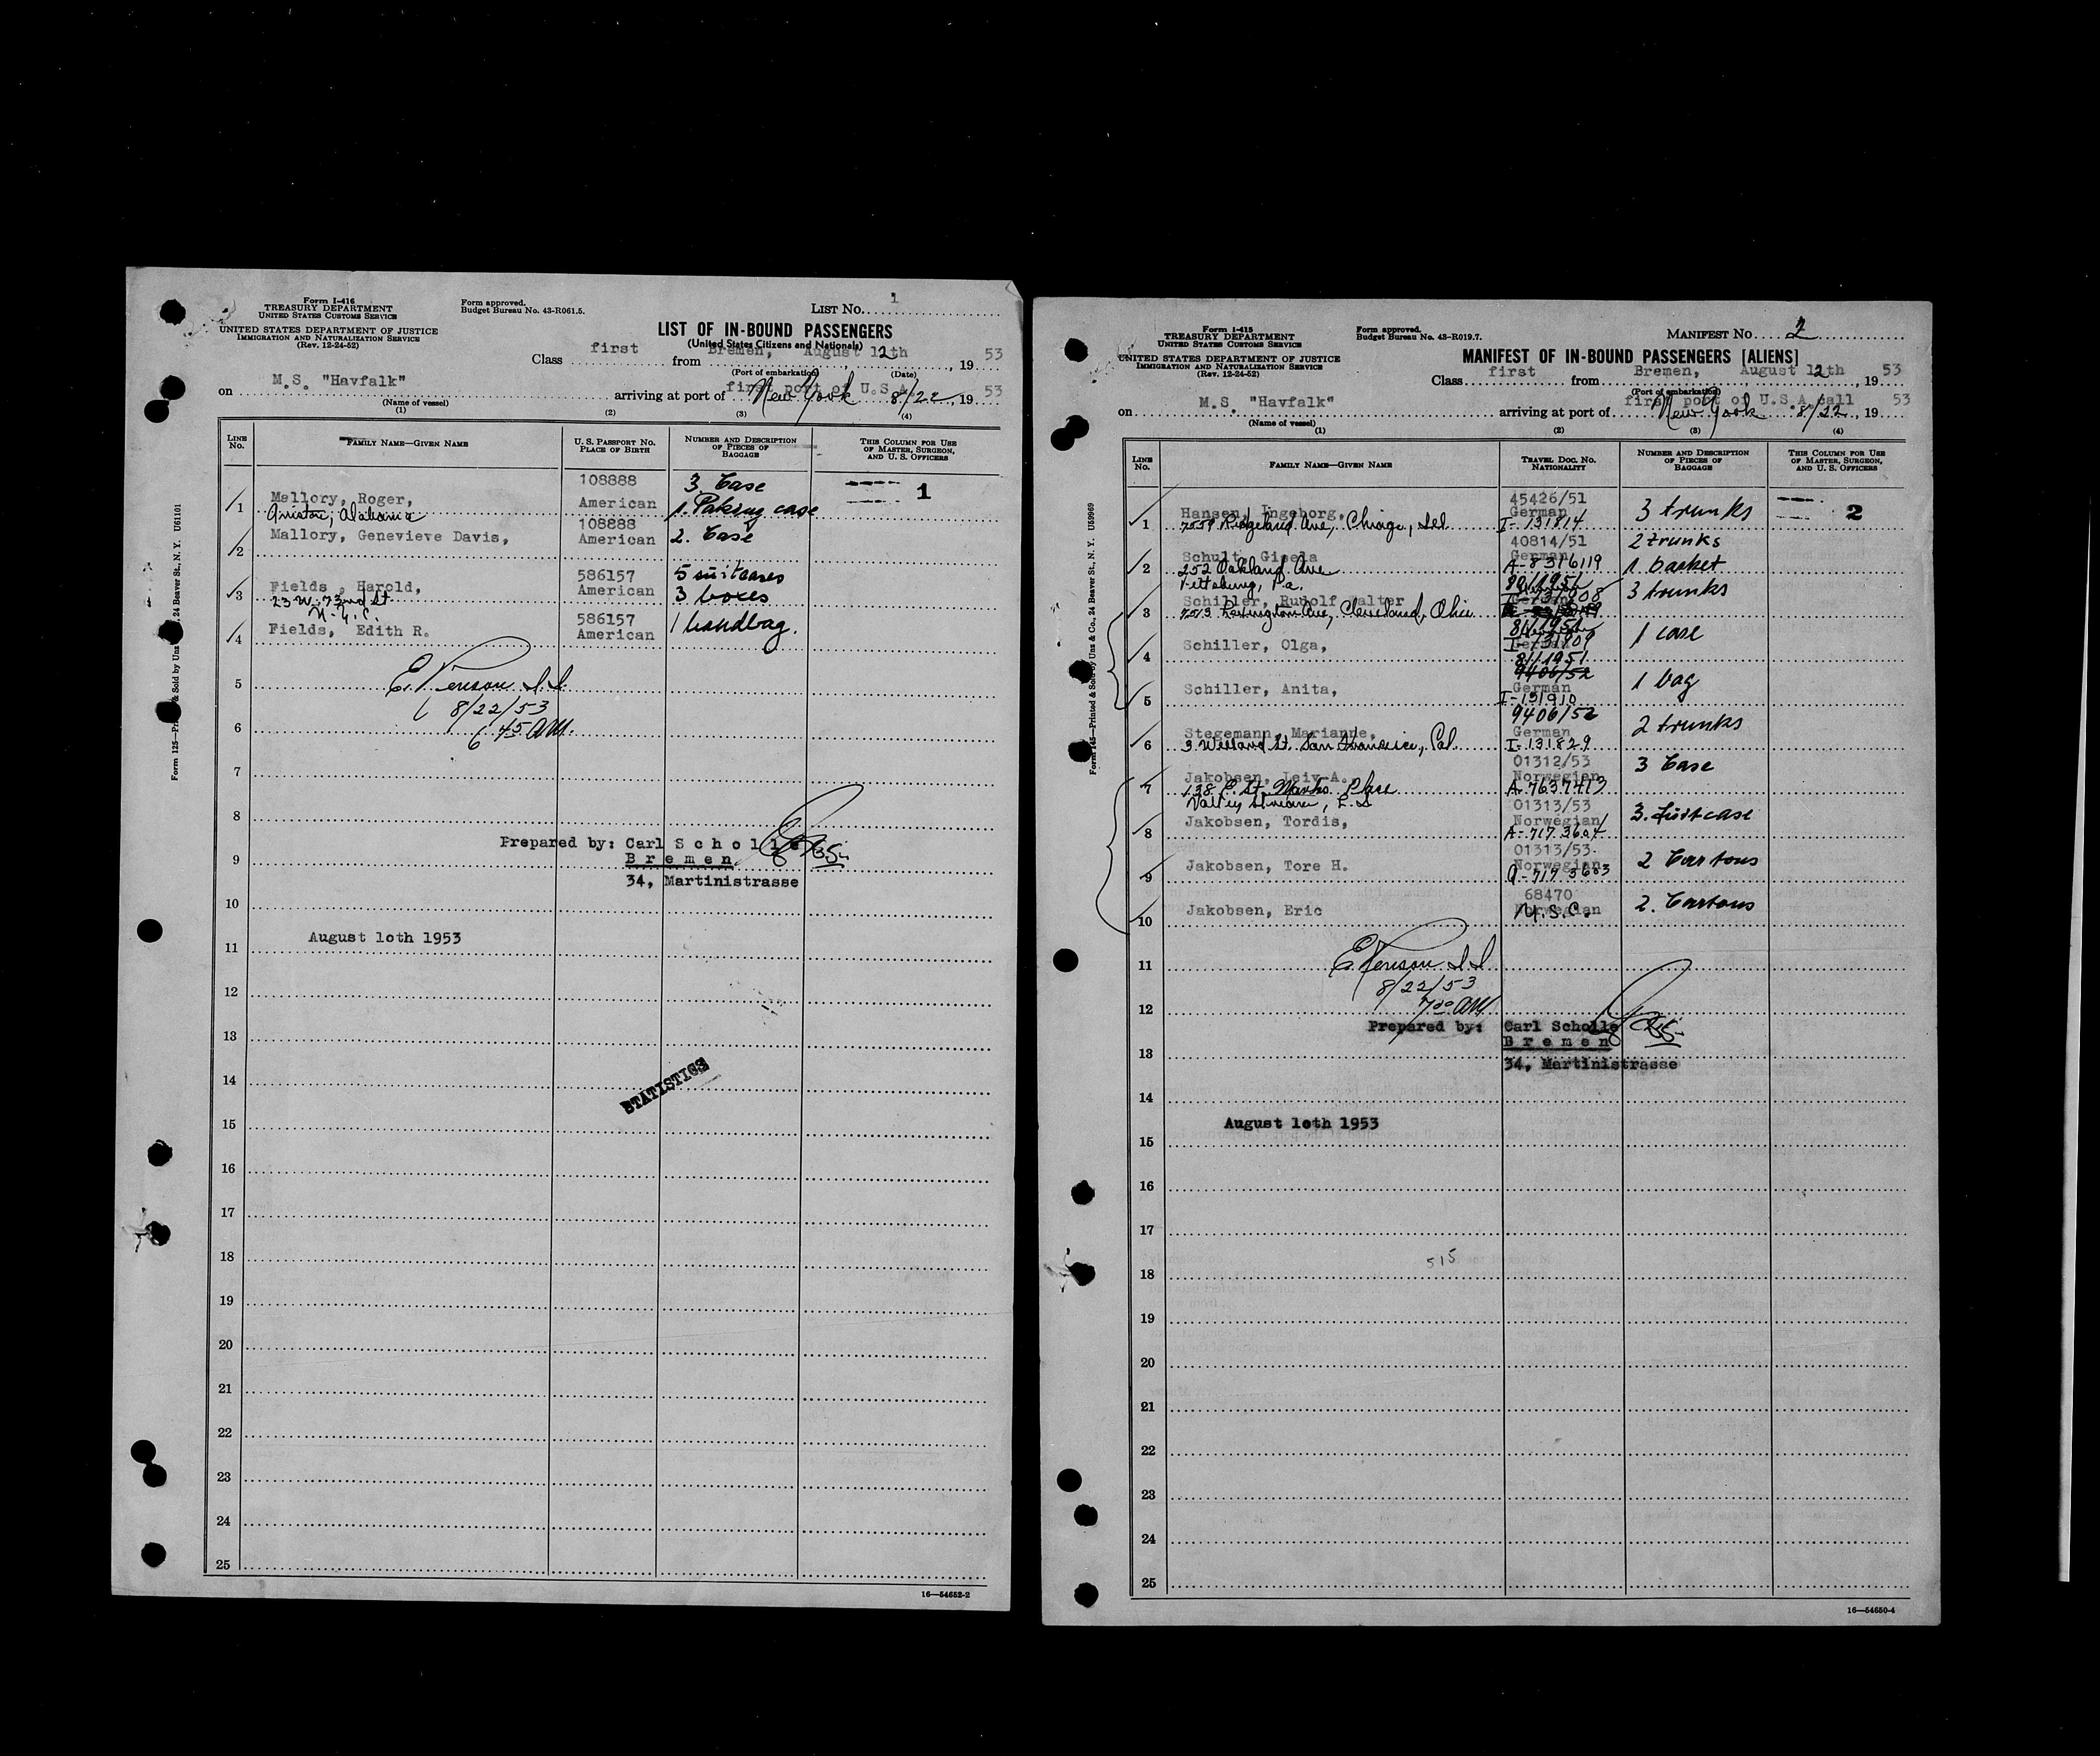 Form I-416
TREASURY DEPARTMENT
UNITED STATES CUSTOMS SERVICE
UNITED STATES DEPARTMENT OF JUSTICE
IMMIGRATION AND NATURALIZATION SERVICE
(Rev. 12-24-52)
Form approved.
Budget Bureau No. 43-R061.5.
LIST NO. 1
LIST OF IN-BOUND PASSENGERS
(United States Citizens and Nationals)
Class first from Bremen, August 12th, 19 53
(Port of embarkation) (Date)
on M.S. "Havfalk" arriving at port of first port of U.S.A. New York 8/22, 19 53
(Name of vessel)
(1) (2) (3) (4)
LINE NO.
FAMILY NAME—GIVEN NAME
U. S. PASSPORT NO. PLACE OF BIRTH
NUMBER AND DESCRIPTION OF PIECES OF BAGGAGE
THIS COLUMN FOR USE OF MASTER, SURGEON, AND U. S. OFFICERS
108888 3. Case
1 Mallory, Roger, American 1. Paking case 1
Alabama
108888
2 Mallory, Genevieve Davis, American 2. Case
586157 5 suitcases
3 Fields, Harold, American 3 boxes
23 W. 73rd St.
N.Y.C.
586157
4 Fields, Edith R. American 1 handbag.
5
8/22/53
6 6 45 AM.
7
8
Prepared by: Carl Scholle
9 Bremen
34, Martinistrasse
10
August 1oth 1953
11
12
13
STATISTICS
14
15
16
17
18
19
20
21
22
23
24
25
16—54652-2
Form 125—Printed & Sold by Unz & Co., 24 Beaver St., N. Y. U61101
Form I-415
TREASURY DEPARTMENT
UNITED STATES CUSTOMS SERVICE
UNITED STATES DEPARTMENT OF JUSTICE
IMMIGRATION AND NATURALIZATION SERVICE
(Rev. 12-24-52)
Form approved.
Budget Bureau No. 43-R019.7.
MANIFEST NO. 2
MANIFEST OF IN-BOUND PASSENGERS [ALIENS]
Class first from Bremen, August 12th, 19 53
(Port of embarkation)
on M.S. "Havfalk" arriving at port of first port of U.S.A. call New York 8/22, 19 53
(Name of vessel)
(1) (2) (3) (4)
LINE NO.
FAMILY NAME—GIVEN NAME
TRAVEL DOC. NO. NATIONALITY
NUMBER AND DESCRIPTION OF PIECES OF BAGGAGE
THIS COLUMN FOR USE OF MASTER, SURGEON, AND U. S. OFFICERS
45426/51
Hansen, Ingeborg, German 3 trunks 2
1 7559 Ridgeland Ave, Chicago, Ill. I-131814
40814/51 2 trunks
Schult, Gisela German
2 252 Oakland Ave A-8316119 1 basket
Pittsburg, Pa.
Schiller, Rudolf Walter 3 trunks
3 Lexington Ave, Cleveland, Ohio
4 Schiller, Olga, 1 case
811/1951
9406/52
5 Schiller, Anita, German 1 bag
I-131910
9406/52
Stegemann, Marianne, German 2 trunks
6 3 Willard St. San Francisco, Cal. I-131829
01312/53
Jakobsen, Leiv A. Norwegian 3 Case
7 138 E. St. Marks Place A-7637413
Valley Stream, L.I.
01313/53
8 Jakobsen, Tordis, Norwegian 3. suitcase
A-7173604
01313/53
9 Jakobsen, Tore H. Norwegian 2 Cartons
A-7173603
68470
10 Jakobsen, Eric Norwegian 2. Cartons
U.S.C.
11
8/22/53
12 7 20 AM
Prepared by: Carl Scholle
Bremen
13
34, Martinistrasse
14
August 1oth 1953
15
16
17
515
18
19
20
21
22
23
24
25
16—54650-4